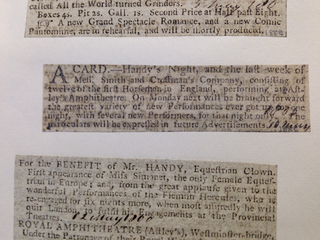 called All the World turned Grinders.
Boxes 4s. Pit 2s. Gall. 1s. Second Price at Half past Eight.
A new Grand Spectacle Romance, and a new Comic
Pantomime, are in rehearsal, and will be shortly produced.
A CARD.—Handy's Night, and the last week of
Mess. Smith and Crossman's Company, consisting of
twelve of the first Horsemen in England, performing at Ast-
ley's Amphitheatre. On Monday next will be brought forward
the greatest variety of new performances ever got up in one
night, with several new Performers, for that night only. The
particulars will be expressed in future Advertisements.
For the BENEFIT of Mr. HANDY, Equestrian Clown.
First appearance of Miss the only Female Eques-
trian in Europe; and, from the great applause given to the
wonderful Performances of the Flemish Hercules, who is
re-engaged for six nights more, when most assuredly he will
quit London, to fulfil his engagements at the Provincial
Theatres.
ROYAL AMPHITHEATRE (Astley's), Westminster-bridge,
Under the Patronage of